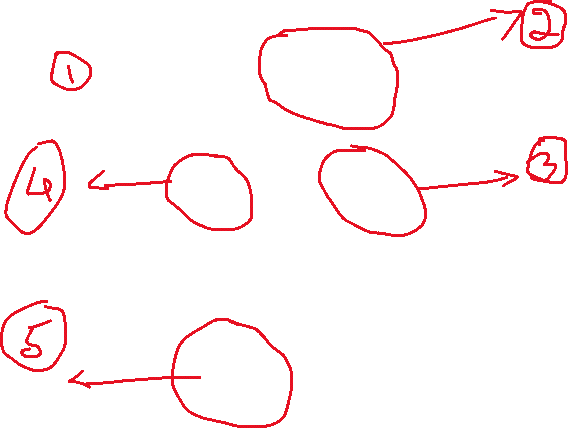 1
2
4
3
5